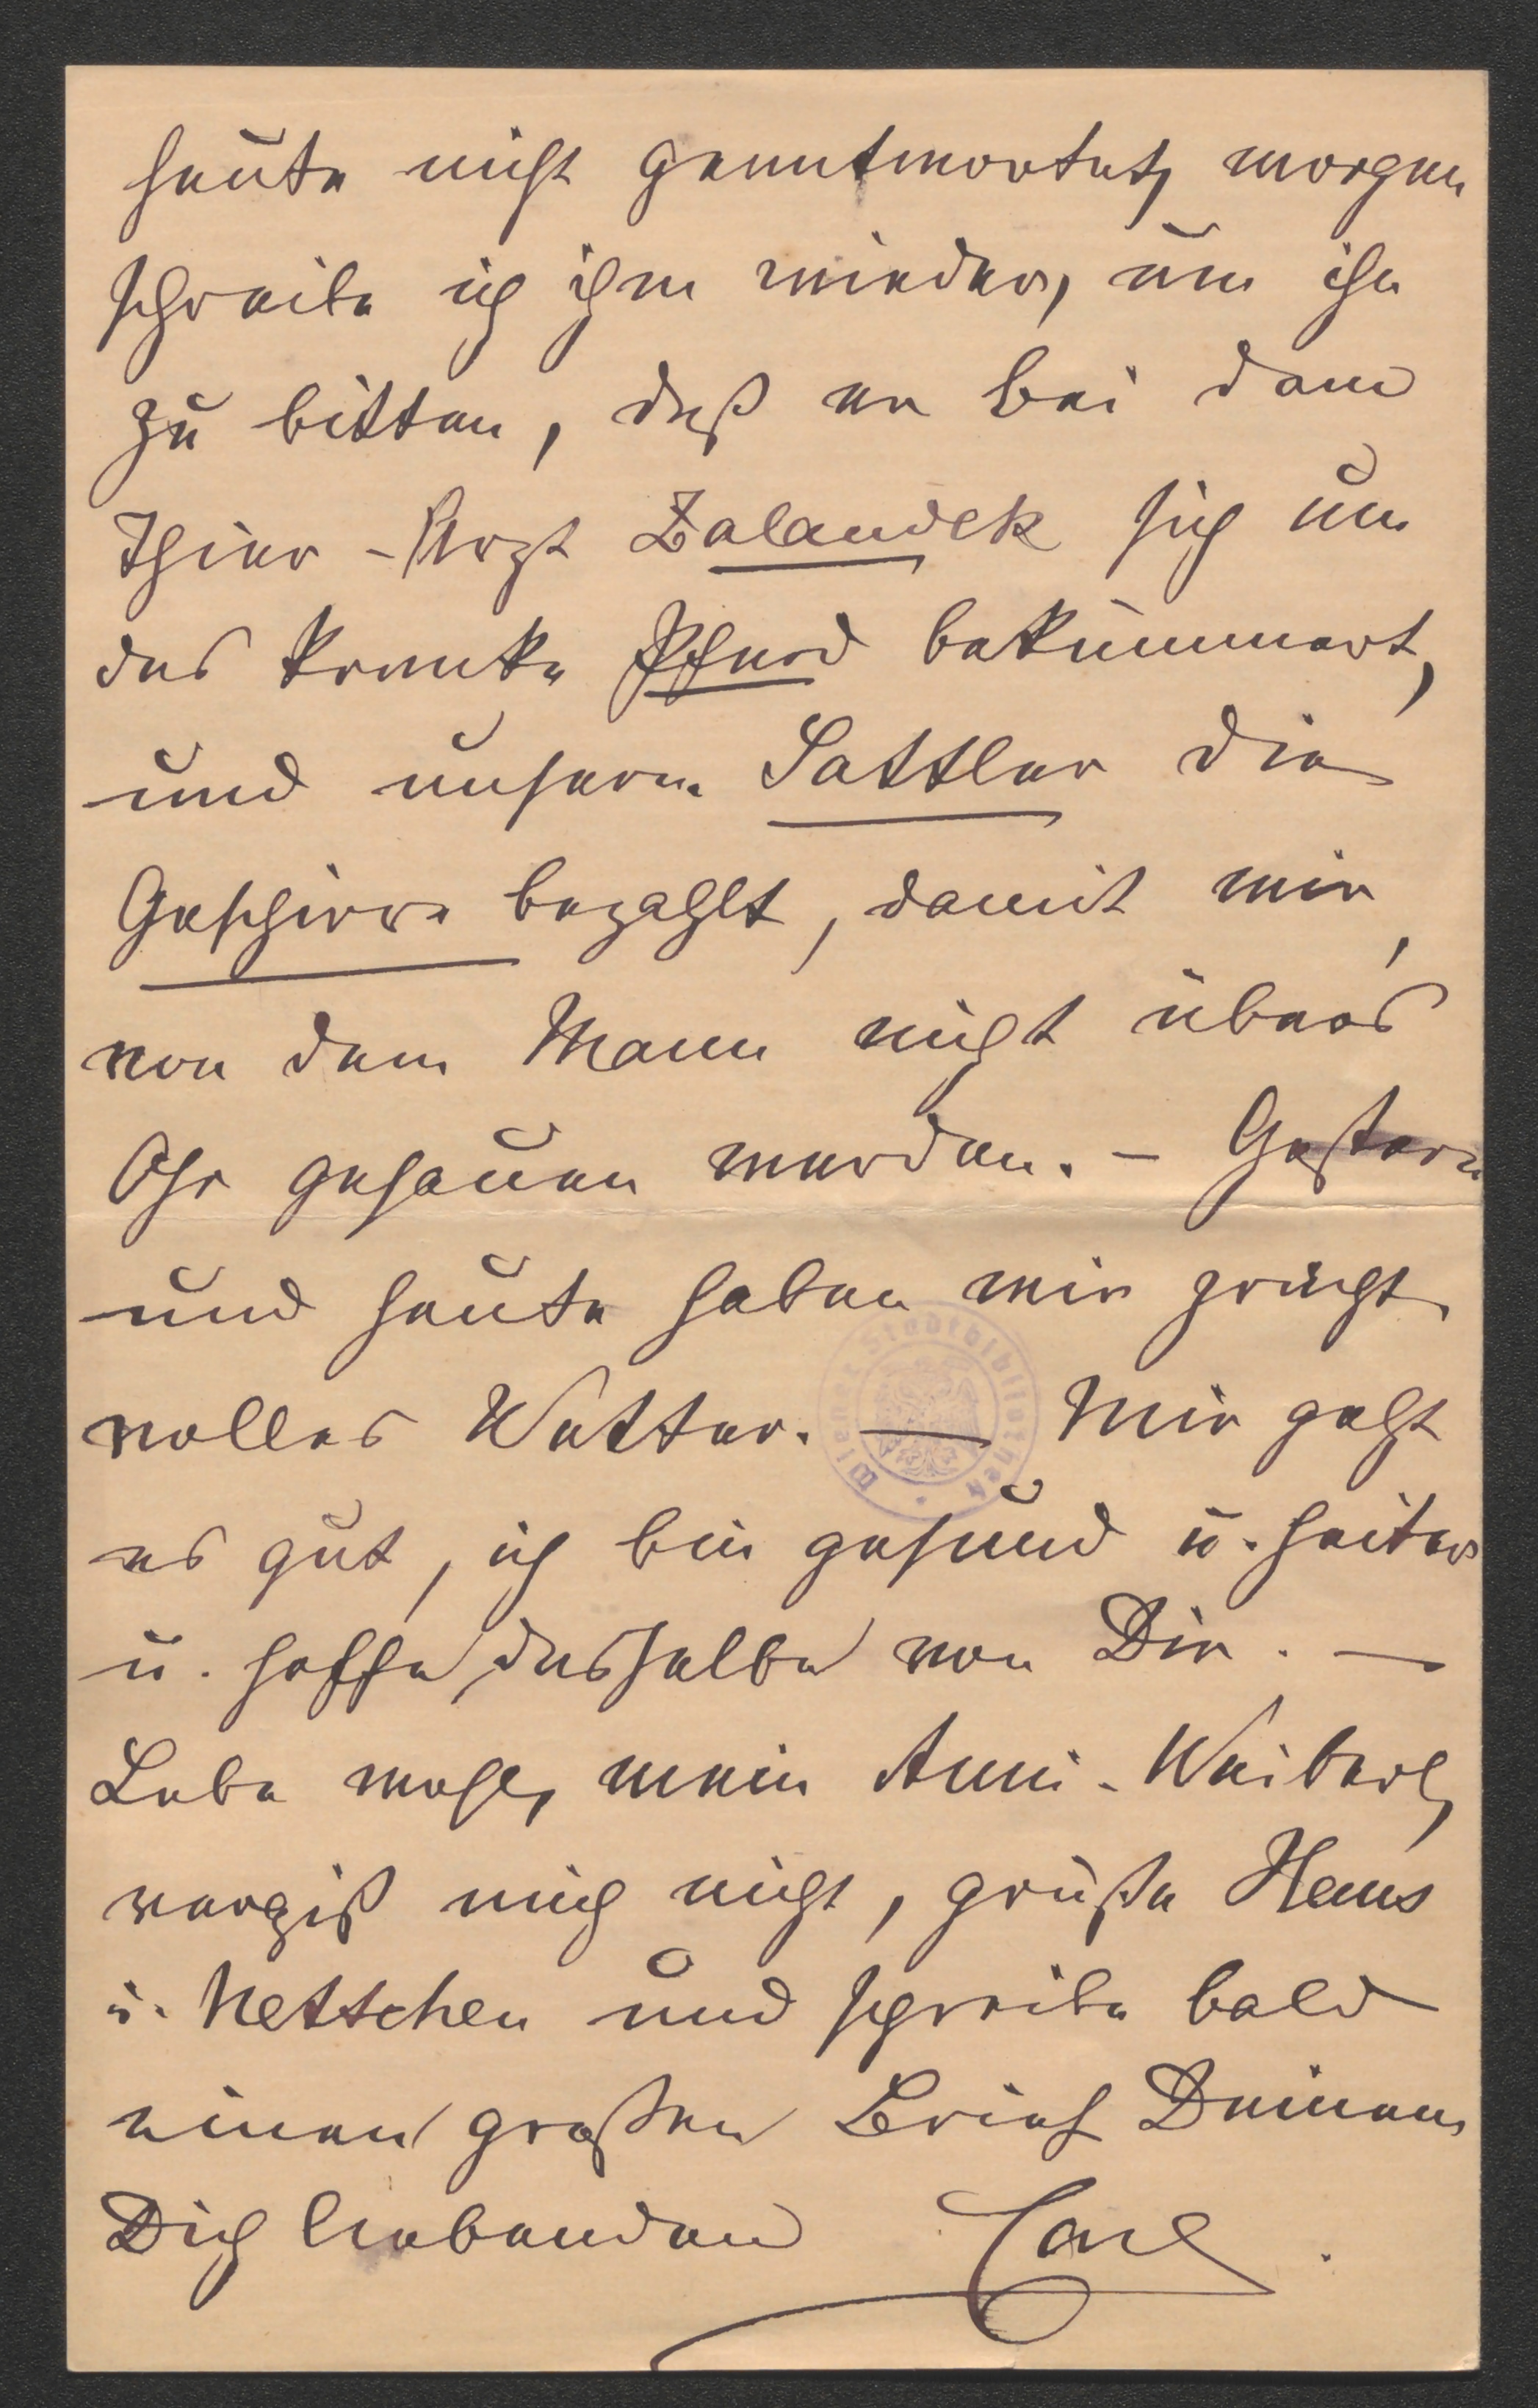 heute nicht geantwortet, morgen
schreibe ich ihm wieder, um ihn
zu bitten, daß er bei dem
Thier-Arzt Zalaudek sich um
das kranke Pferd bekümmert,
und unserm Sattler die
Geschirre bezahlt, damit wir
von dem Mann nicht über's
Ohr gehauen werden. – Gestern
und heute haben wir pracht
volles Wetter. — Mir geht
es gut, ich bin gesund u. heiter
u. hoffe dasselbe von Dir. —
Lebe wohl, mein Anni-Weiberl,
vergiß mich nicht, grüße Hans
u. Nettchen und schreibe bald
einen großen Brief Deinem
Dich liebenden Carl.
Wiener Stadtbibliothek